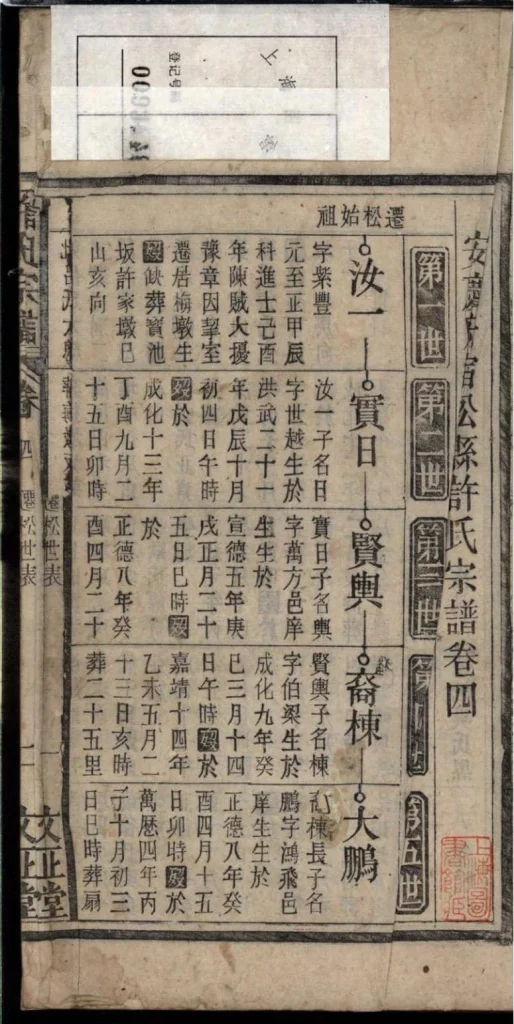 登记号
上海
安慶府宿松縣許氏宗譜卷四
第一世
第二世
第三世
第五世
遷松始祖
汝一
實日
賢輿
裔棟
大鵬
字紫豐
元至正甲辰
科進士己酉
年陳賊大擾
豫章因挈室
遷居梅墩生
歿缺葬寶池
坂許家墩巳
山亥向
汝一子名日
字世越生於
洪武二十一
年戊辰十月
初四日午時
歿於
成化十三年
丁酉九月二
十五日卯時
實日子名輿
字萬方邑庠
生生於
宣德五年庚
戌正月二十
五日巳時歿
於
正德八年癸
酉四月二十
賢輿子名棟
字伯梁生於
成化九年癸
巳三月十四
日午時歿於
嘉靖十四年
乙未五月二
十三日亥時
葬二十五里
棟長子名
鵬字鴻飛邑
庠生生於
正德八年癸
酉四月十五
日卯時歿於
萬曆四年丙
子十月初三
日巳時葬扇
遷松世表
文正堂
宗譜
卷四
遷松世表